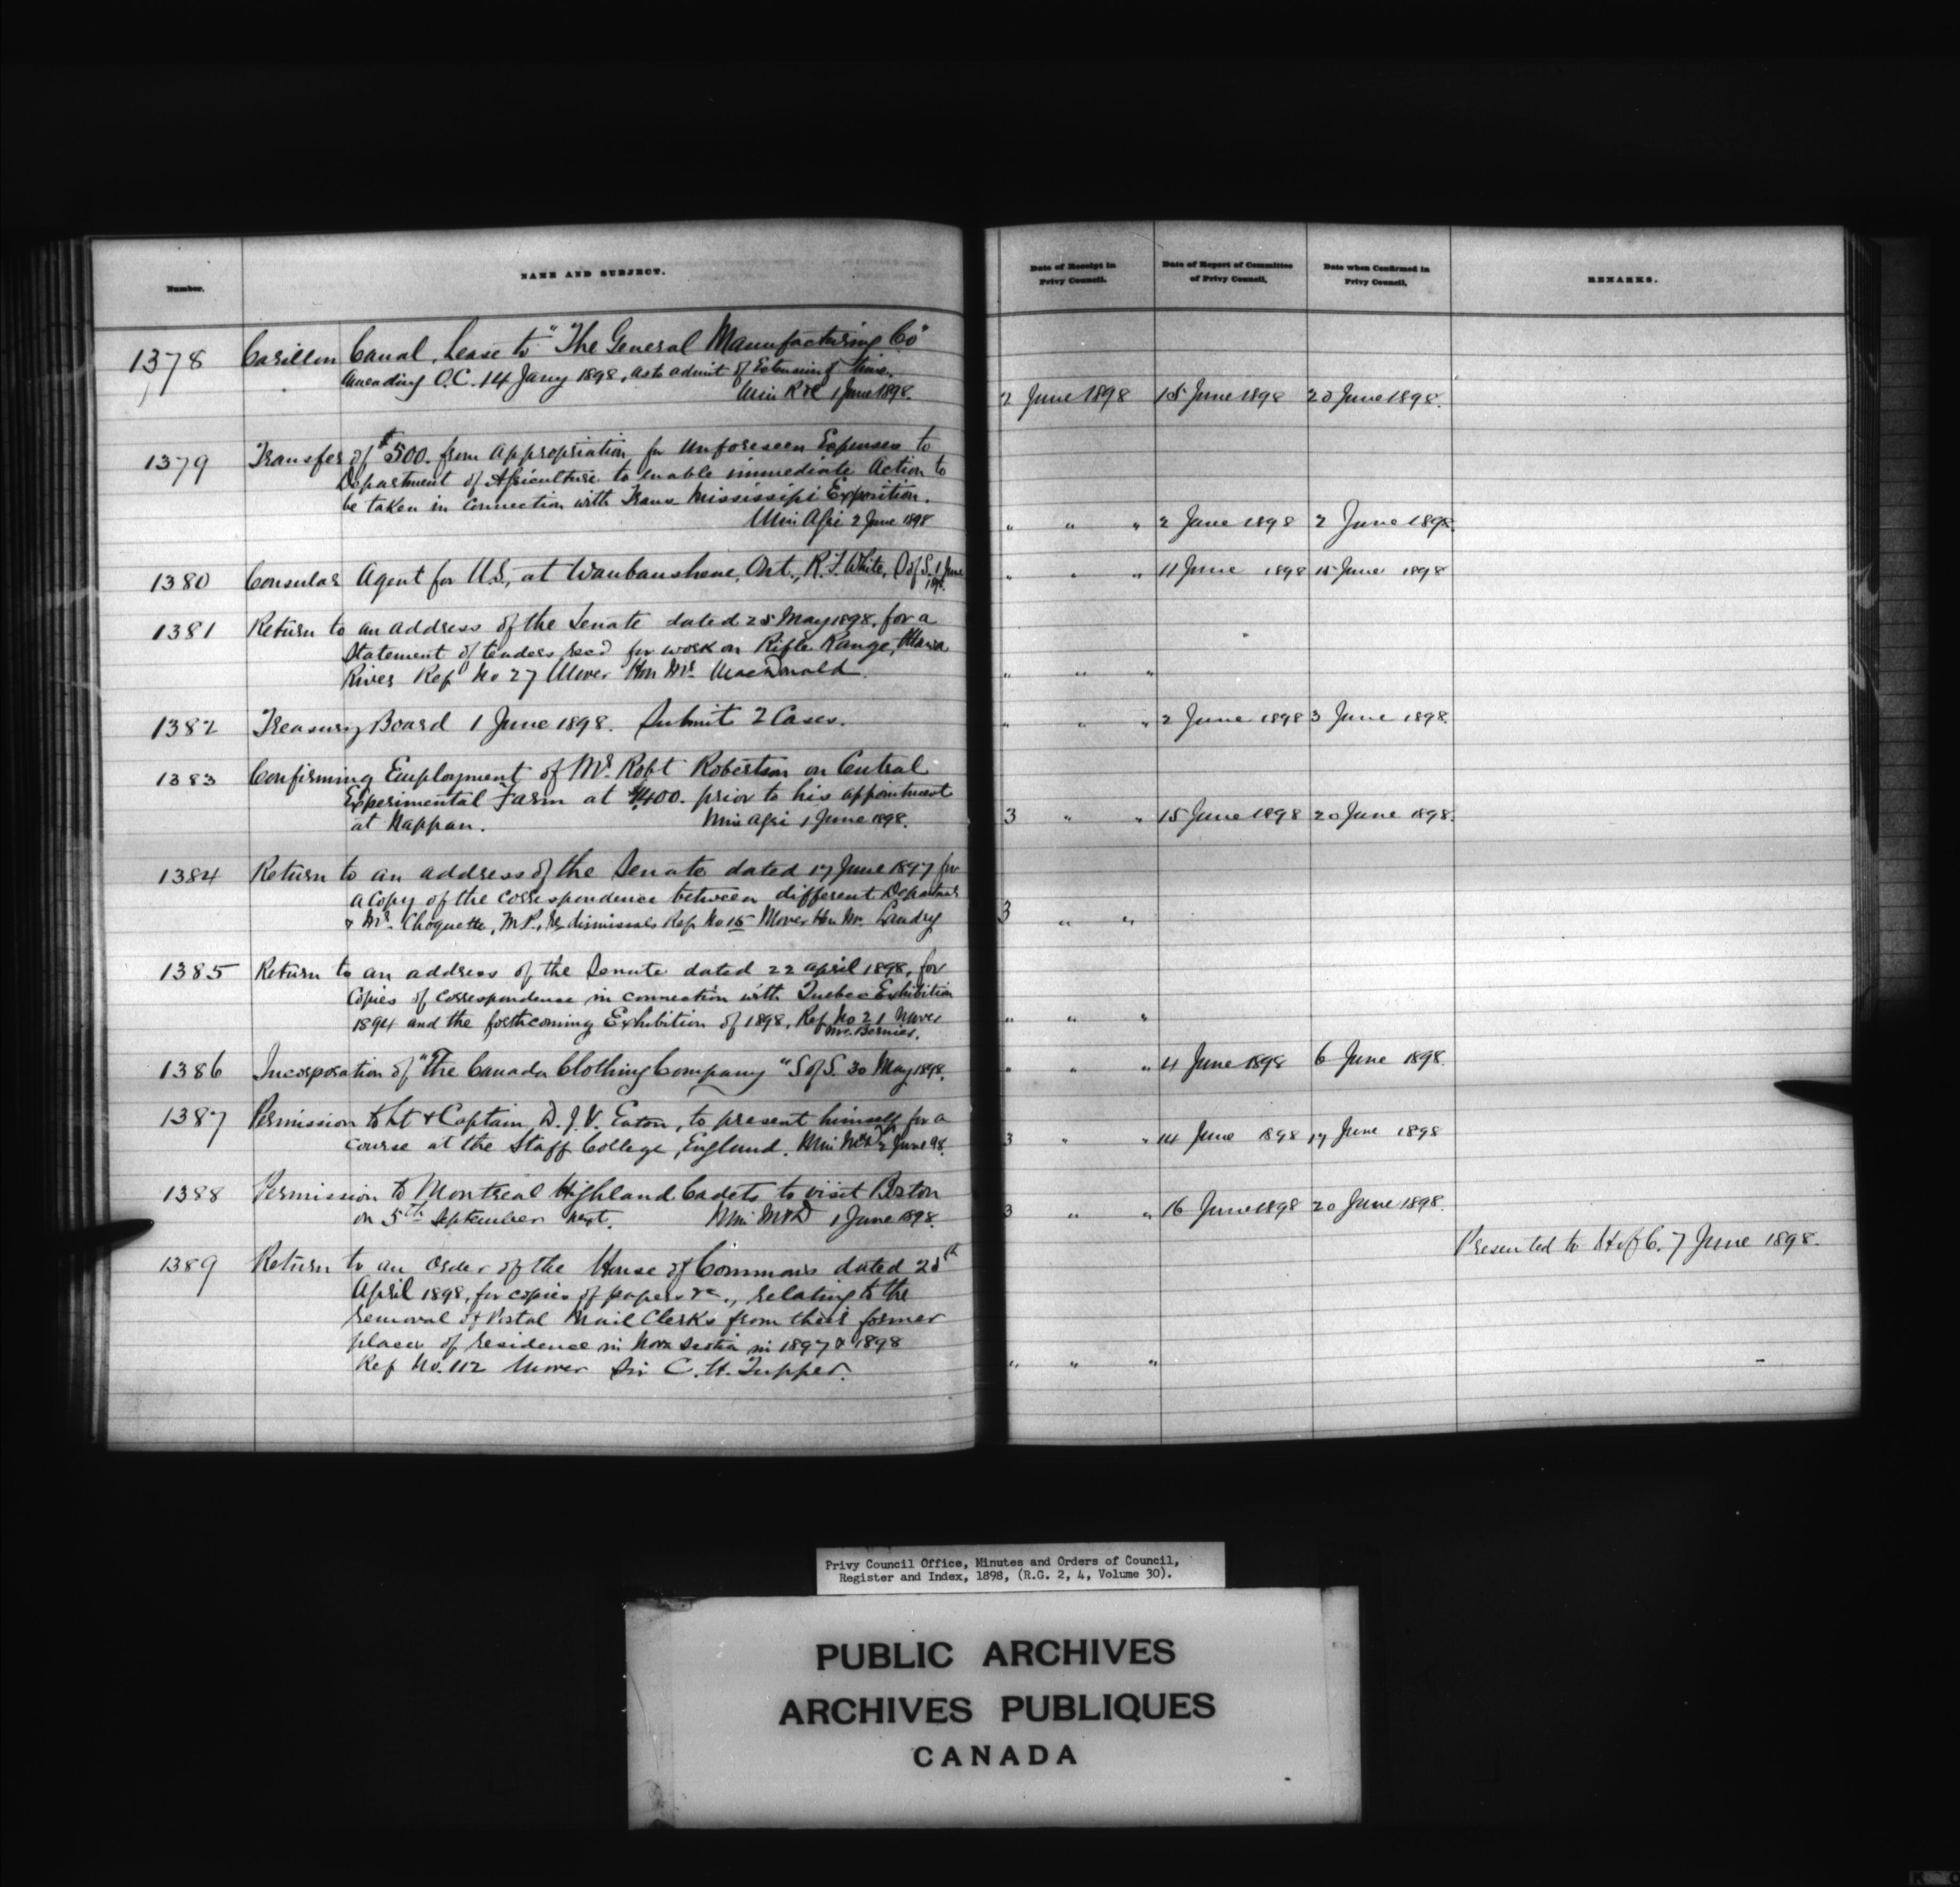 Number.
NAME AND SUBJECT.
Date of Receipt in Privy Council.
Date of Report of Committee of Privy Council.
Date when Confirmed in Privy Council.
REMARKS.
1378 Carillon Canal, Lease to "The General Manufacturing Co"
amending O.C. 14 Jany 1898, as to admit of Extension of time.
Min R & C 1 June 1898. 2 June 1898 15 June 1898 20 June 1898.
1379 Transfer of $500. from appropriation for Unforeseen Expenses to
Department of Agriculture to enable immediate Action to
be taken in connection with Trans-Mississipi Exposition.
Min Agri 2 June 1898 " " " 2 June 1898 2 June 1898.
1380 Consular Agent for U.S., at Waubaushene, Ont., R. T. White, S of S. 1 June 1898. " " " 11 June 1898 15 June 1898
1381 Return to an address of the Senate dated 25 May 1898, for a
Statement of tenders recd for work on Rifle Range, Ottawa
River Ref No 27 Mover Hon Mr. MacDonald. " " "
1382 Treasury Board 1 June 1898. Submit 2 Cases. " " " 2 June 1898 3 June 1898.
1383 Confirming Employment of Mr. Robt Robertson on Central
Experimental Farm at $1400. prior to his appointment
at Nappan. Min Agri 1 June 1898. 3 " " 15 June 1898 20 June 1898.
1384 Return to an address of the Senate dated 17 June 1897 for
a copy of the correspondence between different Departments
& Mr. Choquette, M.P., re dismissals Ref No 15 Mover Hon Mr. Landry 3 " "
1385 Return to an address of the Senate dated 22 April 1898, for
Copies of correspondence in connection with Quebec Exhibition
1894 and the forthcoming Exhibition of 1898, Ref No 21 Mover
Mr. Bernier. " " "
1386 Incorporation of "The Canada Clothing Company" S of S. 30 May 1898. " " " 4 June 1898 6 June 1898.
1387 Permission to Lt & Captain D. J. V. Eaton, to present himself for a
course at the Staff College, England. Min M & D 2 June 98. 3 " " 14 June 1898 17 June 1898
1388 Permission to Montreal Highland Cadets to visit Boston
on 5th September next. Min M & D 1 June 1898. 3 " " 16 June 1898 20 June 1898.
Presented to H of C. 7 June 1898.
1389 Return to an order of the House of Commons dated 25th
April 1898, for copies of papers &c., relating to the
removal of Postal Mail Clerks from their former
places of residence in Nova Scotia in 1897 & 1898
Ref No. 112 Mover Sir C. H. Tupper. " " "
Privy Council Office, Minutes and Orders of Council,
Register and Index, 1898, (R.G. 2, 4, Volume 30).
PUBLIC ARCHIVES
ARCHIVES PUBLIQUES
CANADA